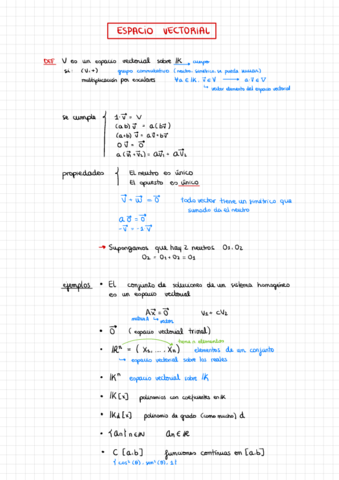 ESPACIO VECTORIAL
DEF V es un espacio vectorial sobre IK cuerpo
si: (V,+) grupo conmutativo
multiplicación por escalares ∀a∈IK, v⃗∈V → a·v⃗∈V
vector elemento del espacio vectorial
se cumple
1·v⃗ = V
(a·b)v⃗ = a(bv⃗)
(a+b)v⃗ = av⃗+bv⃗
0v⃗ = 0⃗
a(v⃗₁+v⃗₂) = av⃗₁ + av⃗₂
propiedades
El neutro es único
El opuesto es único
Todo vector tiene un simétrico que
sumado da el neutro
a0⃗ = 0⃗
-v⃗ = -1v⃗
→ Supongamos que hay 2 neutros O₁, O₂
O₂ = O₁ + O₂ = O₁
ejemplos • El conjunto de soluciones de un sistema homogéneo
es un espacio vectorial
Ax⃗ = 0⃗
matriz vector
• 0⃗ (espacio vectorial trivial)
• IRⁿ = (x₁, ... xₙ) elementos de un conjunto
↳ espacio vectorial sobre los reales
• IKⁿ espacio vectorial sobre IK
• IK[x] polinomios con coeficientes en IK
• IKd[x] polinomio de grado (como mucho) d
• {an|n∈IN an∈IR
• C[a,b] funciones continuas en [a,b]
{cos²(θ), sen²(θ), 1}